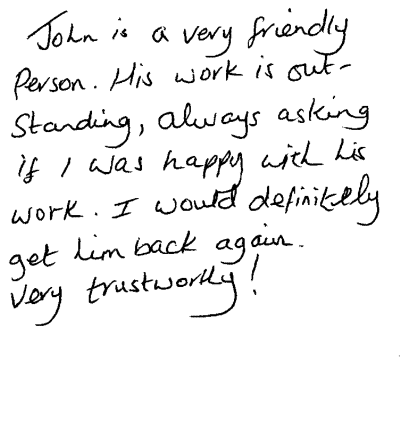 John is a very friendly
Person. His work is out-
Standing, always asking
if I was happy with his
work. I would definitely
get him back again.
Very trustworthy!